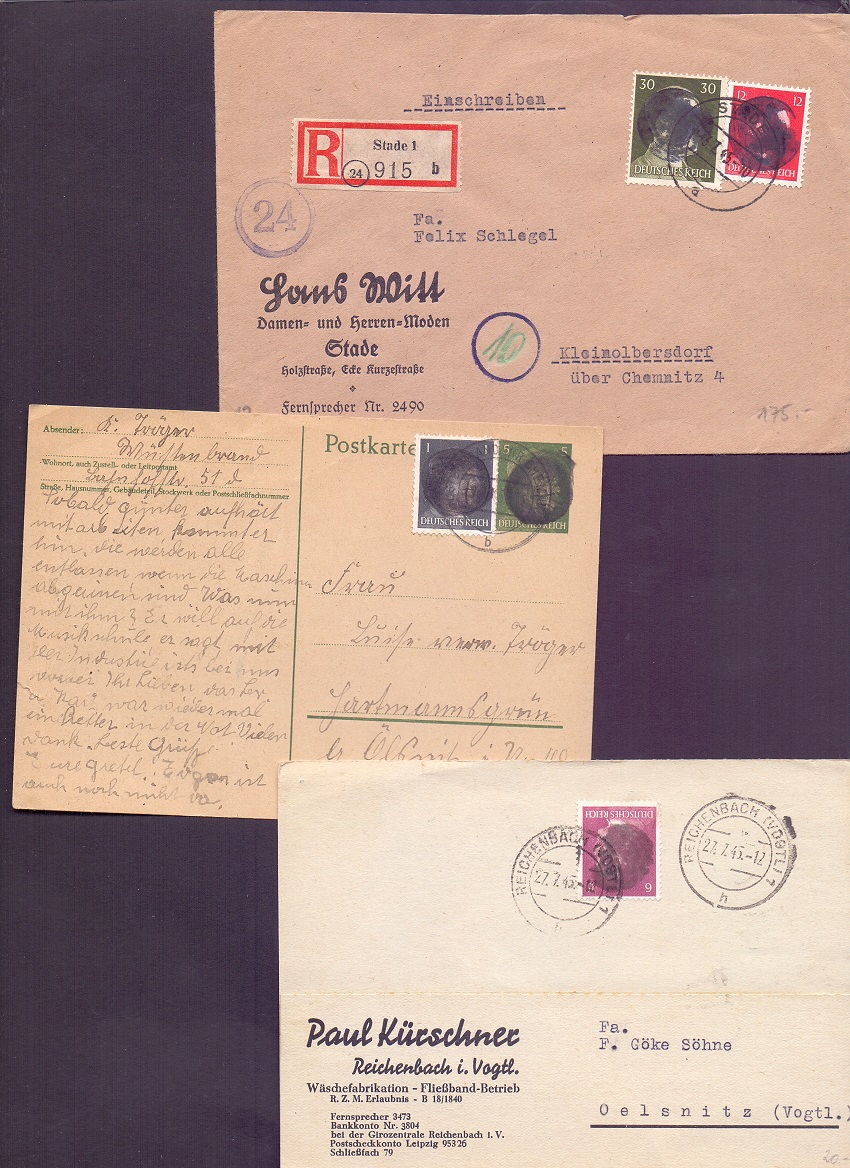 Einschreiben
30 30
DEUTSCHES REICH
12 12
DEUTSCHES REICH
R
Stade 1
(24) 915 b
24
Fa.
Felix Schlegel
Hans Witt
Damen- und Herren-Moden
Stade
Holzstraße, Ecke Kurzestraße
Fernsprecher Nr. 2490
10
Kleinolbersdorf
über Chemnitz 4
175.-
Absender: K. Tröger
Wüstenbrand
Wohnort, auch Zustell- oder Leitpostamt
Bahnhofstr. 51 d
Straße, Hausnummer, Gebäudeteil, Stockwerk oder Postschließfachnummer
Postkarte
1 1
DEUTSCHES REICH
5 5
DEUTSCHES REICH
b
Sobald Günter aufhört
mit arbeiten, kommt er
hin, die werden alle
entlassen wenn die Maschinen
und Was nun
mit ihm? Er will auf die
Musikschule er sagt mit
der Industrie ists bei uns
vorbei Ihr Lieben das
war wieder mal
ein Retter in der Not Vielen
Dank. Beste Grüße
Eure Gretel. ist
auch noch nicht da.
Frau
Luise verw. Tröger
Hartmannsgrün
b. Ölsnitz i. V.
6
DEUTSCHES REICH
REICHENBACH (VOGTL) 1
27.7.45.-12
h
REICHENBACH (VOGTL) 1
27.7.45.-12
h
Paul Kürschner
Reichenbach i. Vogtl.
Wäschefabrikation - Fließband-Betrieb
R. Z. M. Erlaubnis - B 18/1840
Fernsprecher 3473
Bankkonto Nr. 3804
bei der Girozentrale Reichenbach i. V.
Postscheckkonto Leipzig 95326
Schließfach 79
Fa.
F. Göke Söhne
Oelsnitz (Vogtl.)
20.-